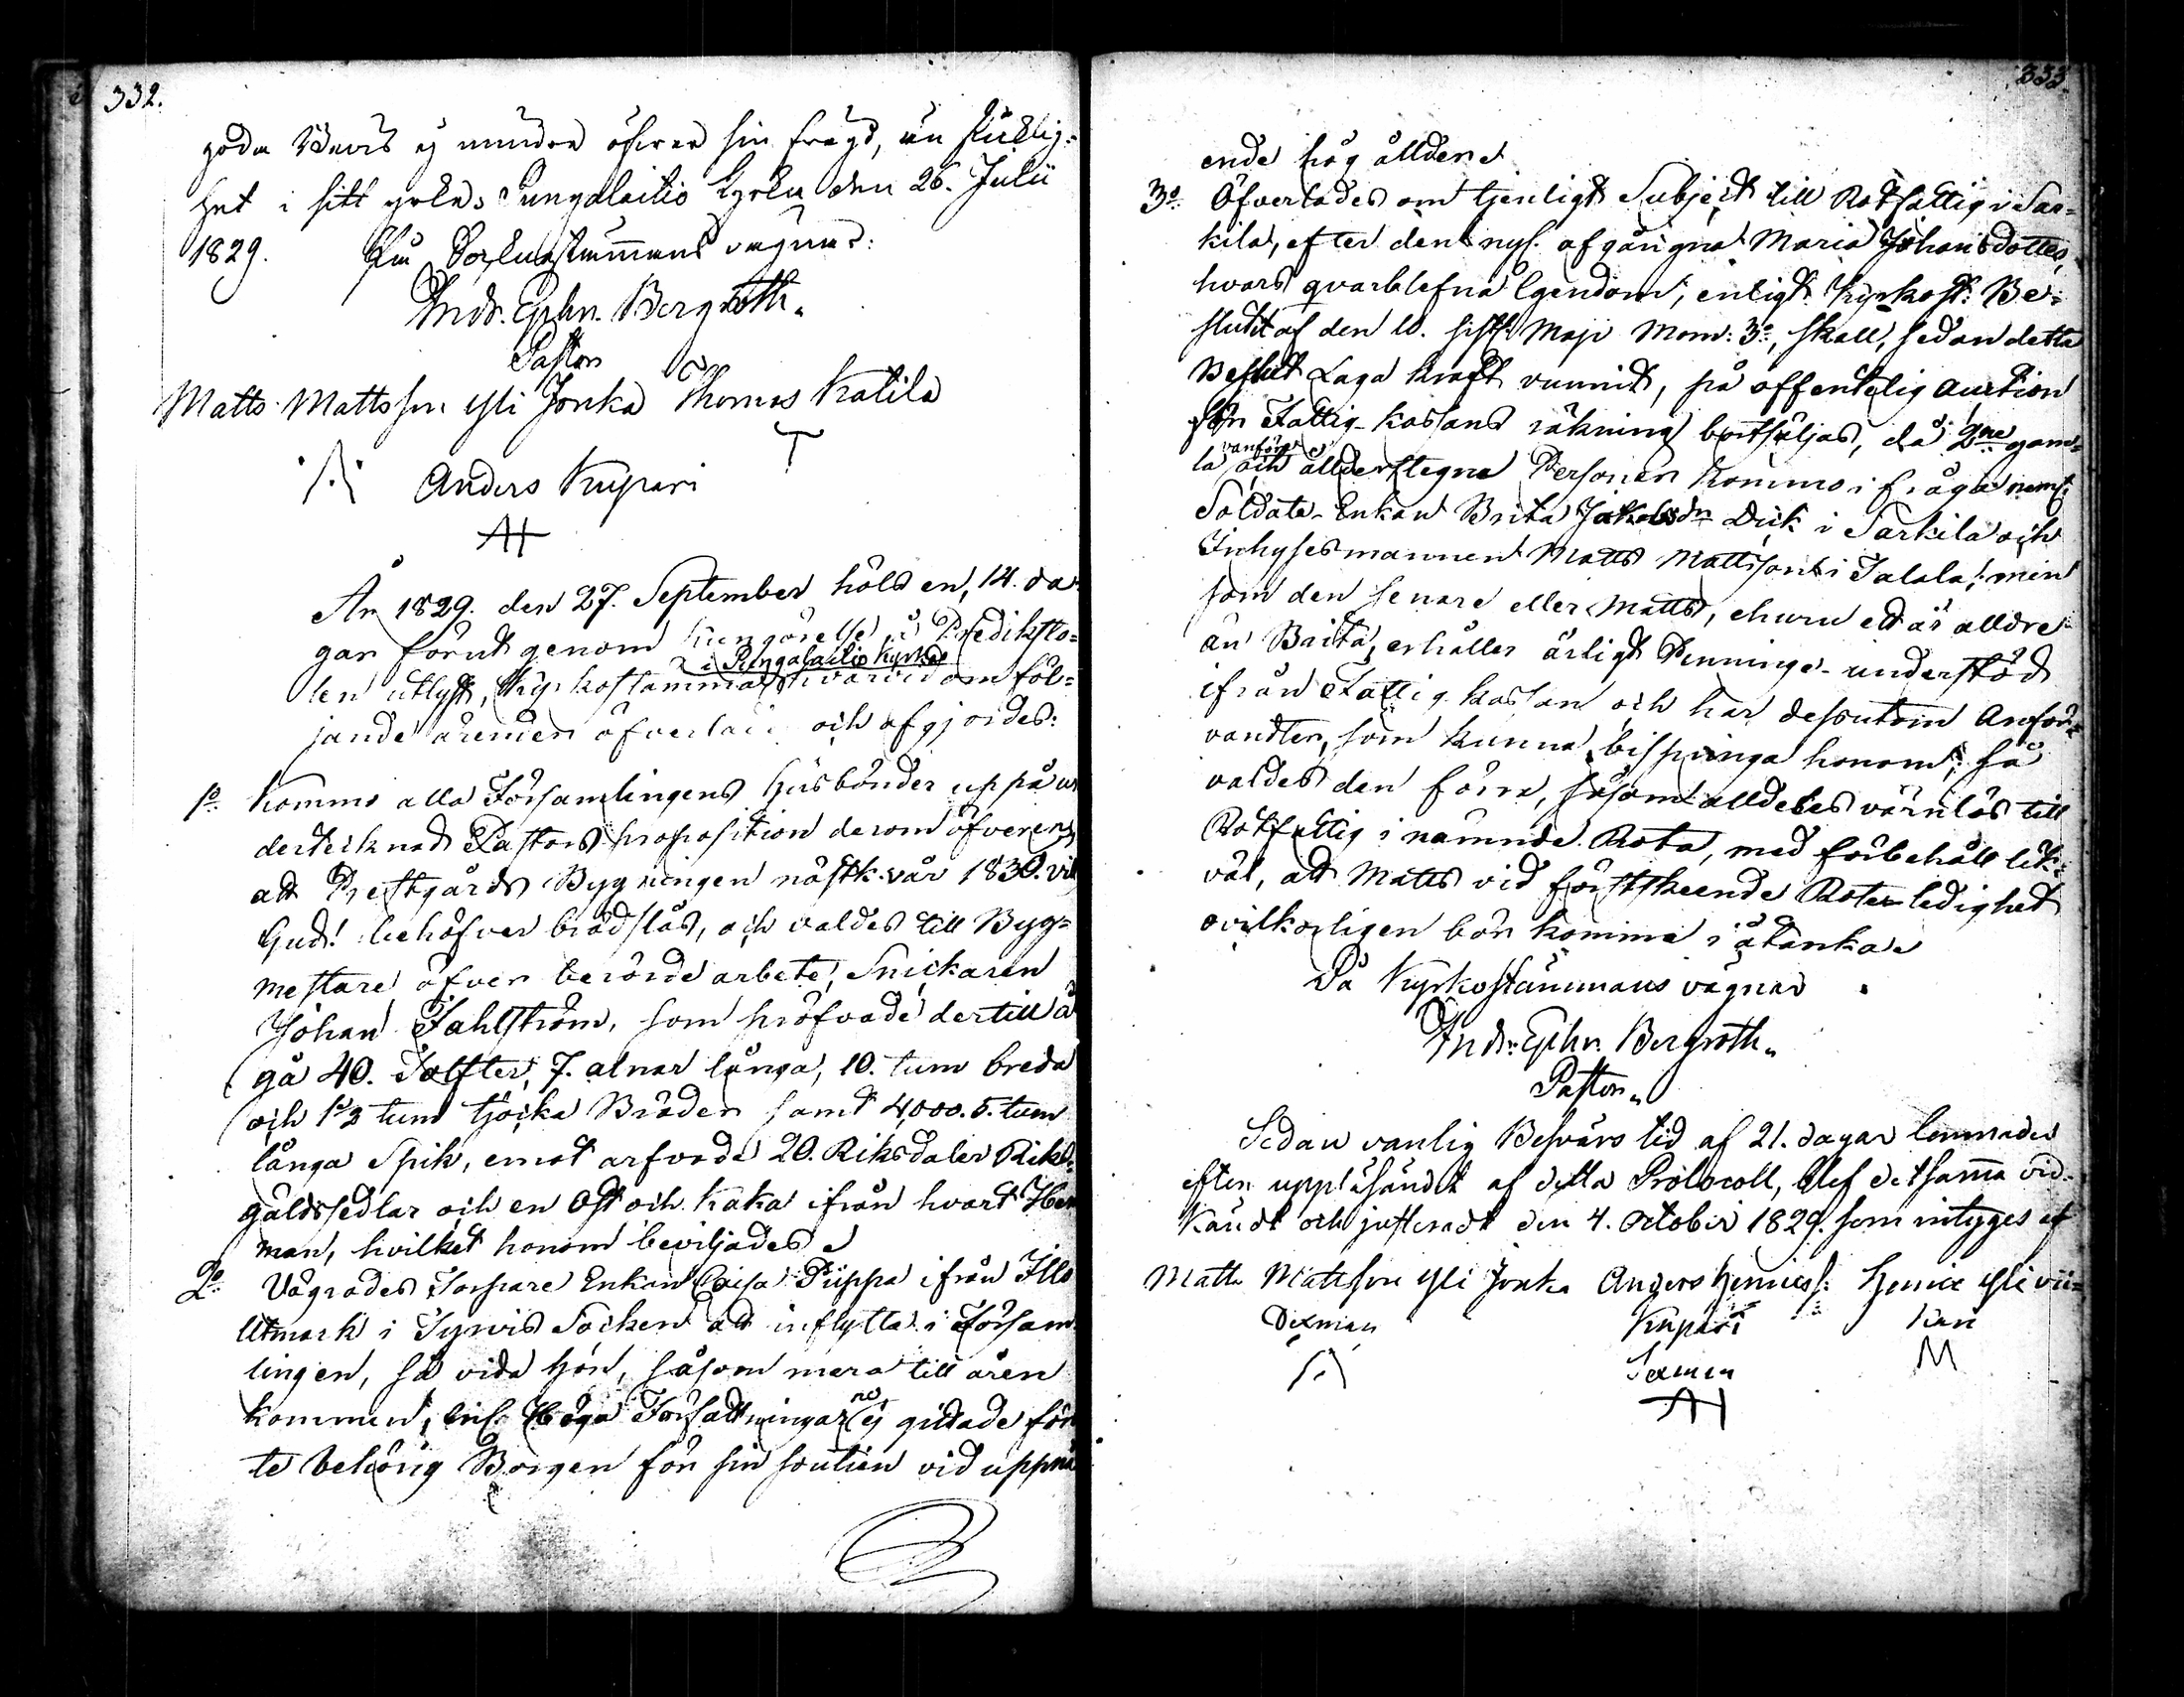 332.
goda Wärds ej mindre öfver sin frägd, än skicklig-
het i sitt yrke. Pungalaitio Kyrka den 26. Julii
1829. På Sockenstämmans vägnar:
Andr. Ephr. Bergroth.
Pastor
Matts Mattsson Yli Jonka Thomas Katila
Anders Kupari
År 1829. den 27. September hölds en, 14. da-
gar förut genom kungörelse å Prediksto-
i Pungalaitio Kyrka
len utlyst, Kyrkostämma hvarvid om föl-
jande ärenden öfverlades och afgjordes:
1o. Kommo alla Församlingens Husbönder uppå un
dertecknad Pastors proposition derom öfverens
att Prestgårds Bygningen nästk. vår 1830. vil
Gud! behöfver brädslås, och valdes till Byg-
mestare öfver berörde arbete, Snickaren
Johan Fahlström, som pröfvade dertill å
gå 40. Tolfter, 7. alnar långa, 10. tum breda
och 1½ tum tjocka Bräder samt 4,000. 5. tum
långa Spik, emot arfvode 20. Riksdaler Riks-
gäldssedlar och en Ost och Kaka ifrån hvart Hem
man, hvilket honom beviljades.
2o. Vägrades Torpare Enkan Caisa Piippa ifrån Illo
Utmark i Tyrvis Socken att inflytta i Försam
lingen, så vida hon, såsom mera till åren
kommen, enl. Höga Författningar ej gittade för
no
te behörig Borgen för sin soutien vid uppnå
333.
ende hög ållder.
3o. Öfverlades om tjenligt Subject till Rotfattig i Sar-
kila, efter den nyl. afgångna Maria Johansdotter,
hvars qvarblefna Egendom, enligt Kyrkost: Be-
slutet af den 10. sistl. Maji Mom: 3o, skall, sedan detta
Beslut Laga Kraft vunnit, på offentelig Auction
för Fattig-kassans räkning bortsäljas, då 2ne gam-
vanföra
la och ållderstegna Personer kommo i fråga neml:
Soldats-Enkan Brita Jakobsdr Dick i Sarkila och
Inhyses mannen Matts Mattsson i Talala; men
som den senare eller Matts, ehuru ett år älldre
än Brita, erhåller årligt Pennings-understöd
ifrån Fattig kassan och har dessutom Anför-
vandter, som kunna bispringa honom; så
valdes den förra, såsom alldeles värnlös till
Rotfattig i nämnde Rota, med förbehåll lik-
väl, att Matts vid förstskeende Rote-ledighet
ovilkorligen bör komma i åtanka.
På Kyrkostämmans vägnar
Andr. Ephr. Bergroth.
Pastor.
Sedan vanlig Besvärs tid af 21. dagar lemnades
efter uppläsandet af detta Protocoll, blef detsamma vid-
kändt och justeradt den 4. October 1829. som intygas af
Matts Mattsson Yli Jonka Anders Henricss: Henric Yli vii-
Sexman Kupari kari
Sexman